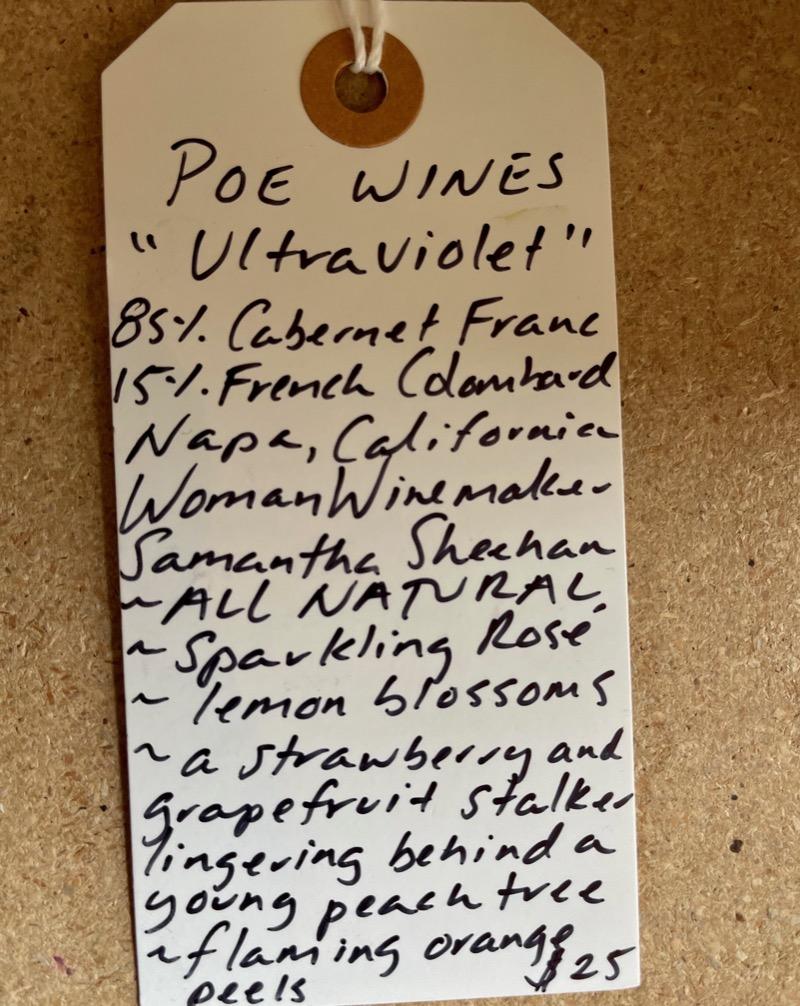 POE WINES
"Ultraviolet"
85%. Cabernet Franc
15%. French Colombard
Napa, California
Woman Winemaker
Samantha Sheehan
~ALL NATURAL
~ Sparkling Rosé
~ lemon blossoms
~ a strawberry and
grapefruit stalker
lingering behind a
young peach tree
~flaming orange
peels $25